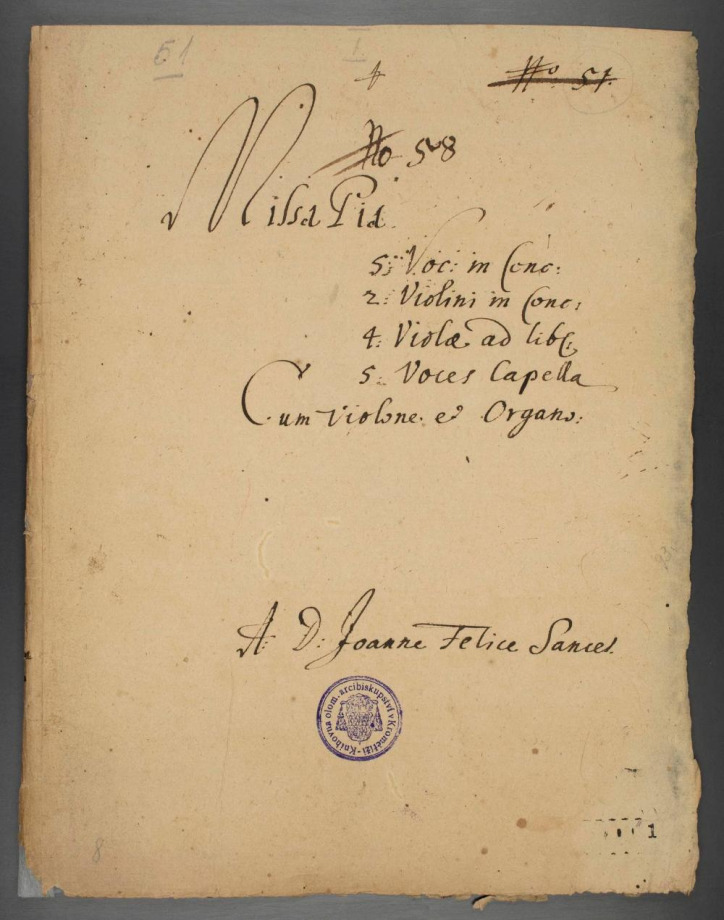 51
I
No 51.
No 58
Missa Pia.
5: Voc: in Conc:
2: Violini in Conc:
4: Violæ ad lib:
5: Voces Capella
Cum Violone. et Organo:
A: D: Joanne Felice Sances.
Knihovna olom. arcibiskupství v Kroměříži
1
8